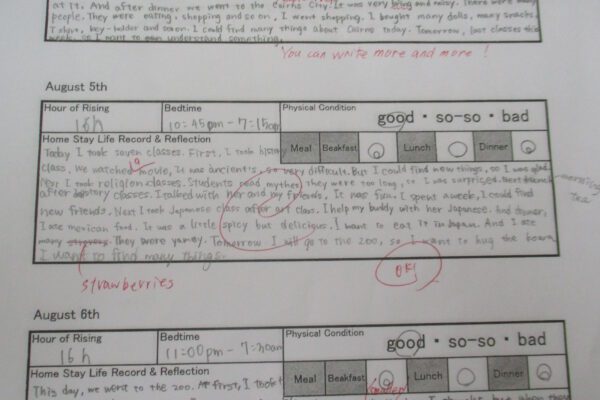 at it. And after dinner we went to the Cairns City. It was very and noisy. There were many
people. They were eating, shopping and so on, I went shopping. I bought many dolls, many snacks,
T shirt, key-holder and so on. I could find many things about Cairns today. Tomorrow, last classes the
week, so I want to understand something.
"You can write more and more!
August 5th
Hour of Rising Bedtime Physical Condition
16h 10:45pm-7:15am good・so-so・bad
Home Stay Life Record & Reflection Meal Breakfast Lunch Dinner
Today I took seven classes. First, I took history
class, we watched a movie, It was ancient's, so very difficult. But I could find new things, so I was glad.
Next I took religion classes. Students read mythes they were too long, so I was surprised. Next
after history classes. I talked with her and my friends, It was fun. I spent a week, I could find morning
new friends. Next I took Japanese class after art class. I help my buddy with her Japanese. And dinner, tea
I ate mexican food. It was a little spicy but delicious. I want to eat it in Japan. And I ate
many They were yammy. Tomorrow I will go to the zoo, so I want to hug the
I want to find many things.
strawberries
OK!
August 6th
Hour of Rising Bedtime Physical Condition
16h 11:00pm-7:30am good・so-so・bad
Home Stay Life Record & Reflection Meal Breakfast Lunch Dinner
This day, we went to the zoo. At first, I took